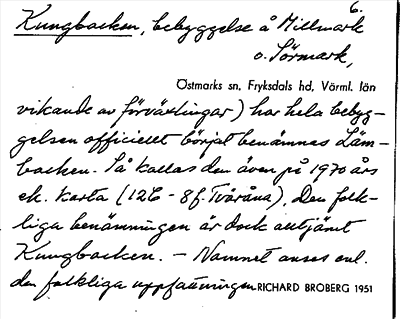 6.
Kungbacken, bebyggelse å Millmark
o. Sörmark,
Östmarks sn, Fryksdals hd, Värml. län
vikande av förväxlingar) har hela bebyg-
gelsen officiellt börjat benämnas Läm-
backen. Så kallas den även på 1970 års
ek. karta (12C - 8f. Tväråna). Den folk-
liga benämningen är dock alltjämt
Kungbacken. – Namnet anses enl.
den folkliga uppfattningen RICHARD BROBERG 1951